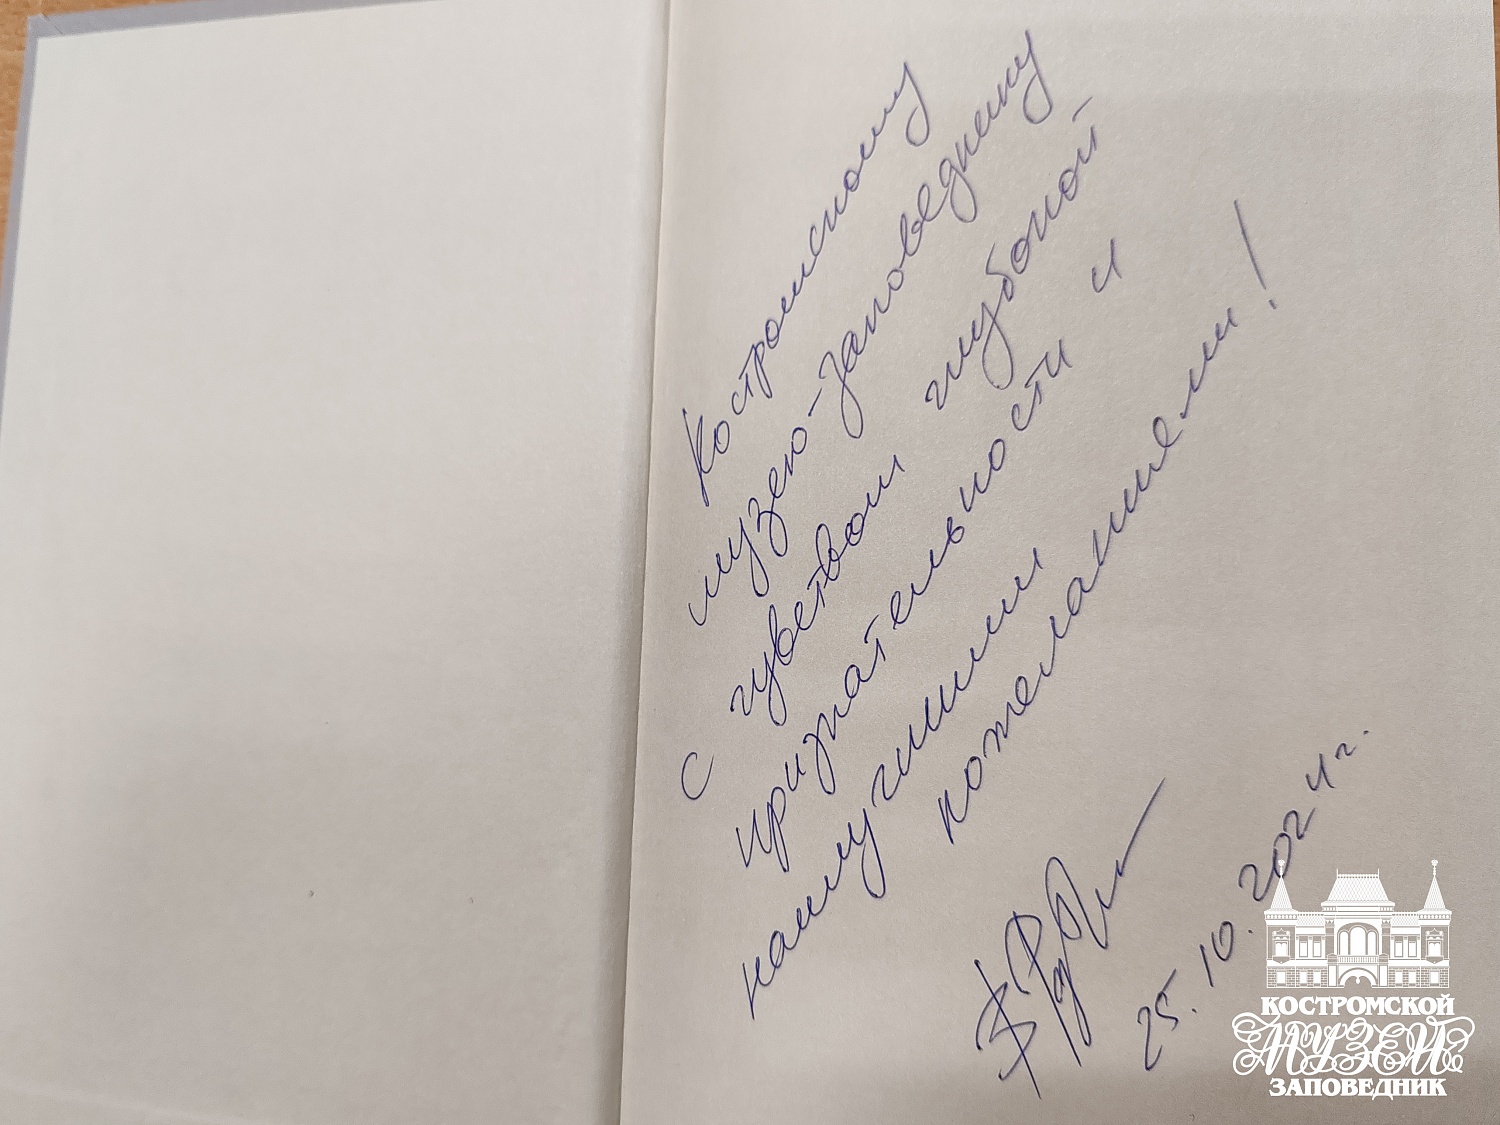 Костромскому
музею-заповеднику
с чувством глубокой
признательности и
наилучшими
пожеланиями!
25.10.2024г.
КОСТРОМСКОЙ
МУЗЕЙ
ЗАПОВЕДНИК